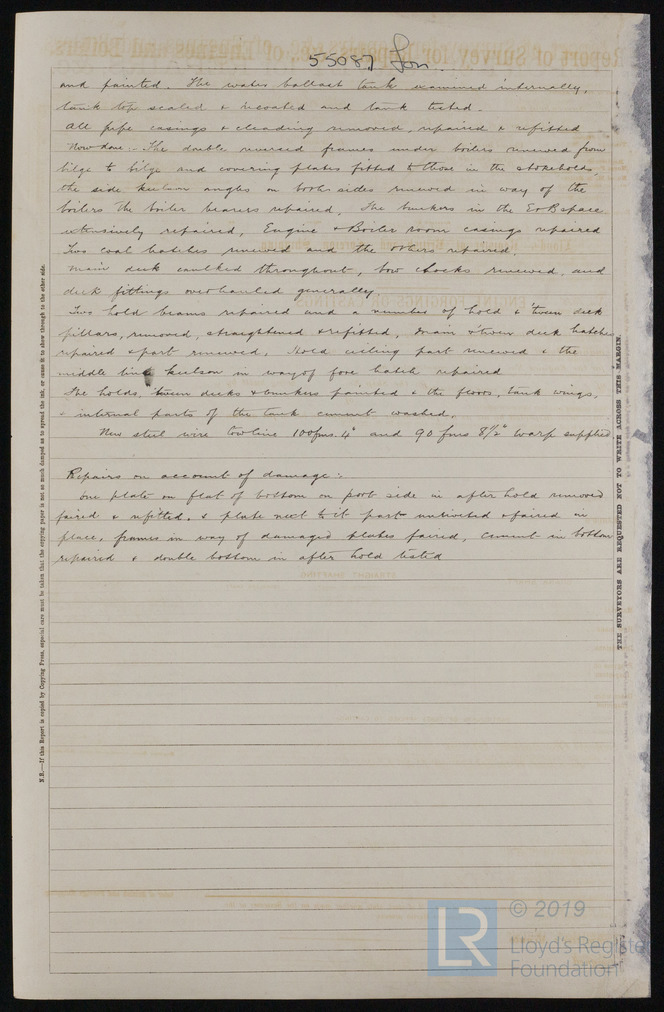 55087 Lon.
and painted. The water ballast tank examined internally,
tank top scaled & recoated and tank tested.
All pipe casings & cleading removed, repaired & refitted
Now done:- The double reversed frames under boilers renewed from
bilge to bilge and covering plates fitted to those in the stokeholds,
the side keelson angles on both sides renewed in way of the
boilers the boiler bearers repaired, The bunkers in the E & B space
extensively repaired, Engine & Boiler room casings repaired
Two coal hatches renewed and the others repaired.
Main deck caulked throughout, bow chocks renewed, and
deck fittings overhauled generally.
Two hold beams repaired and a number of hold & 'tween deck
pillars, removed, straightened & refitted, Main & 'tween deck hatches
repaired & part renewed, Hold ceiling part renewed & the
middle line keelson in way of fore hatch repaired
The holds, 'tween decks & bunkers painted & the floors, tank wings,
& internal parts of the tank cement washed.
New steel wire towline 100 fms. 4" and 90 fms 8½" warp supplied
Repairs on account of damage:-
One plate on flat of bottom on port side in after hold removed
faired & refitted, & plate next to it part unriveted & faired in
place, frames in way of damaged plates faired, cement in bottom
repaired & double bottom in after hold tested
N.B.—If this Report is copied by Copying Press, especial care must be taken that the copying paper is not so much damped as to spread the ink, or cause it to show through to the other side.
THE SURVEYORS ARE REQUESTED NOT TO WRITE ACROSS THIS MARGIN.
LR
© 2019
Lloyd's Register
Foundation